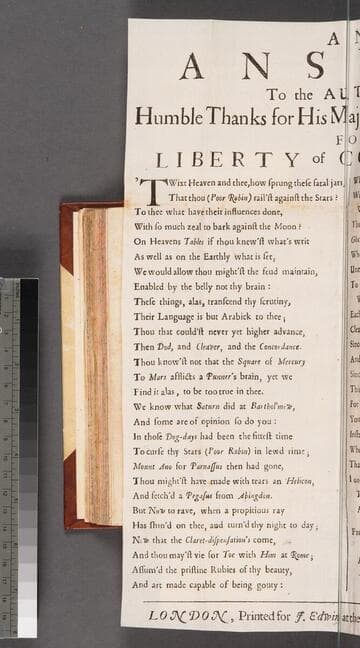 A N
A N S
To the AUT
Humble Thanks for His Maj
FO
LIBERTY of CO
'TWixt Heaven and thee, how sprung these fatal jars,
That thou (Poor Robin) rail'st against the Stars?
To thee what have their influences done,
With so much zeal to bark against the Moon?
On Heavens Tables if thou knew'st what's writ
As well as on the Earthly what is set;
We would allow thou might'st the feud maintain,
Enabled by the belly not thy brain:
These things, alas, transcend thy scrutiny,
Their Language is but Arabick to thee;
Thou that could'st never yet higher advance,
Then Dod, and Cleaver, and the Concordance.
Thou know'st not that the Square of Mercury
To Mars afflicts a Punner's brain, yet we
Find it alas, to be too true in thee.
We know what Saturn did at Barthol'mew,
And some are of opinion so do you:
In those Dog-days had been the fittest time
To curse thy Stars (Poor Robin) in lewd rime;
Mount Ano for Parnassus then had gone,
Thou might'st have made with tears an Helicon,
And fetch'd a Pegasus from Abingdon.
But Now to rave, when a propitious ray
Has shin'd on thee, and turn'd thy night to day;
Now that the Claret-dispensation's come,
And thou may'st vie for Toe with Him at Rome;
Assum'd the pristine Rubies of thy beauty,
And art made capable of being gouty:
LONDON, Printed for J. Edwin at the